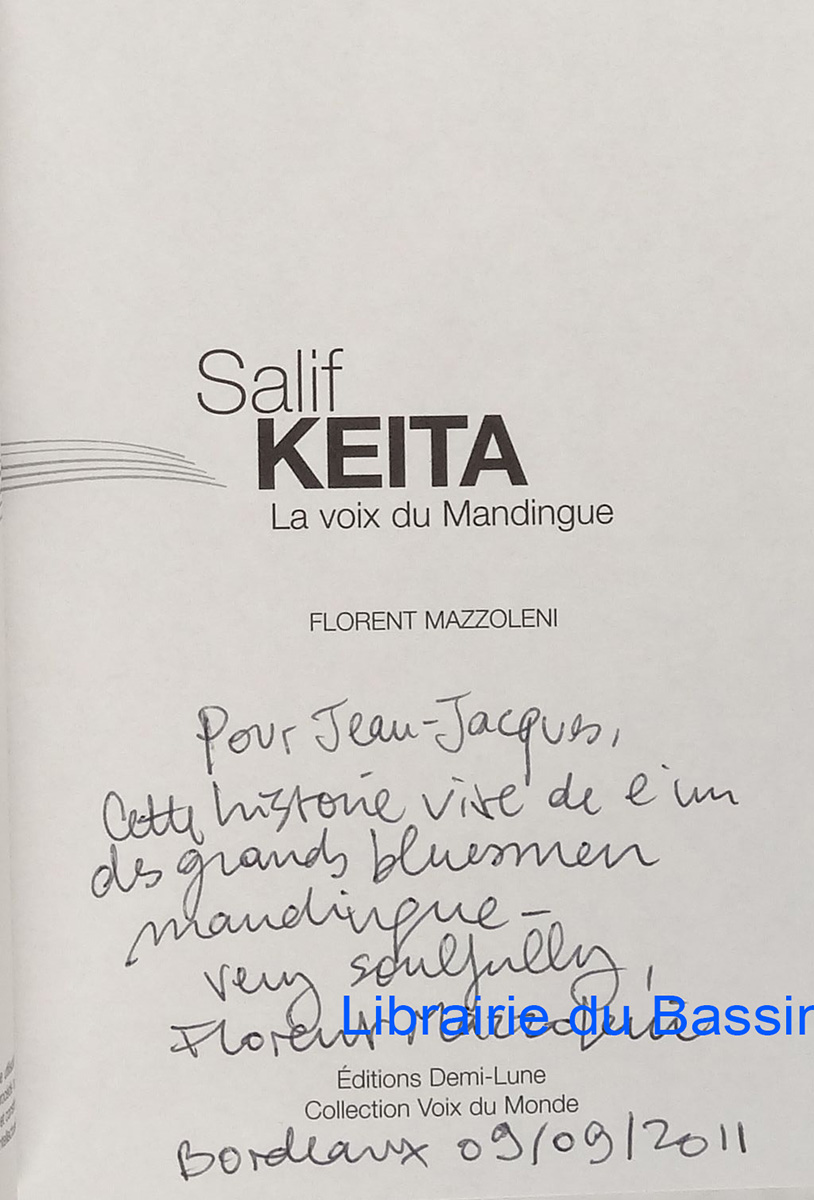 Salif
KEITA
La voix du Mandingue
FLORENT MAZZOLENI
Pour Jean-Jacques,
Cette histoire vive de l'un
des grands bluesmen
mandingue –
very soulfully,
Florent Mazzoleni
Librairie du Bassin
Éditions Demi-Lune
Collection Voix du Monde
Bordeaux 09/09/2011